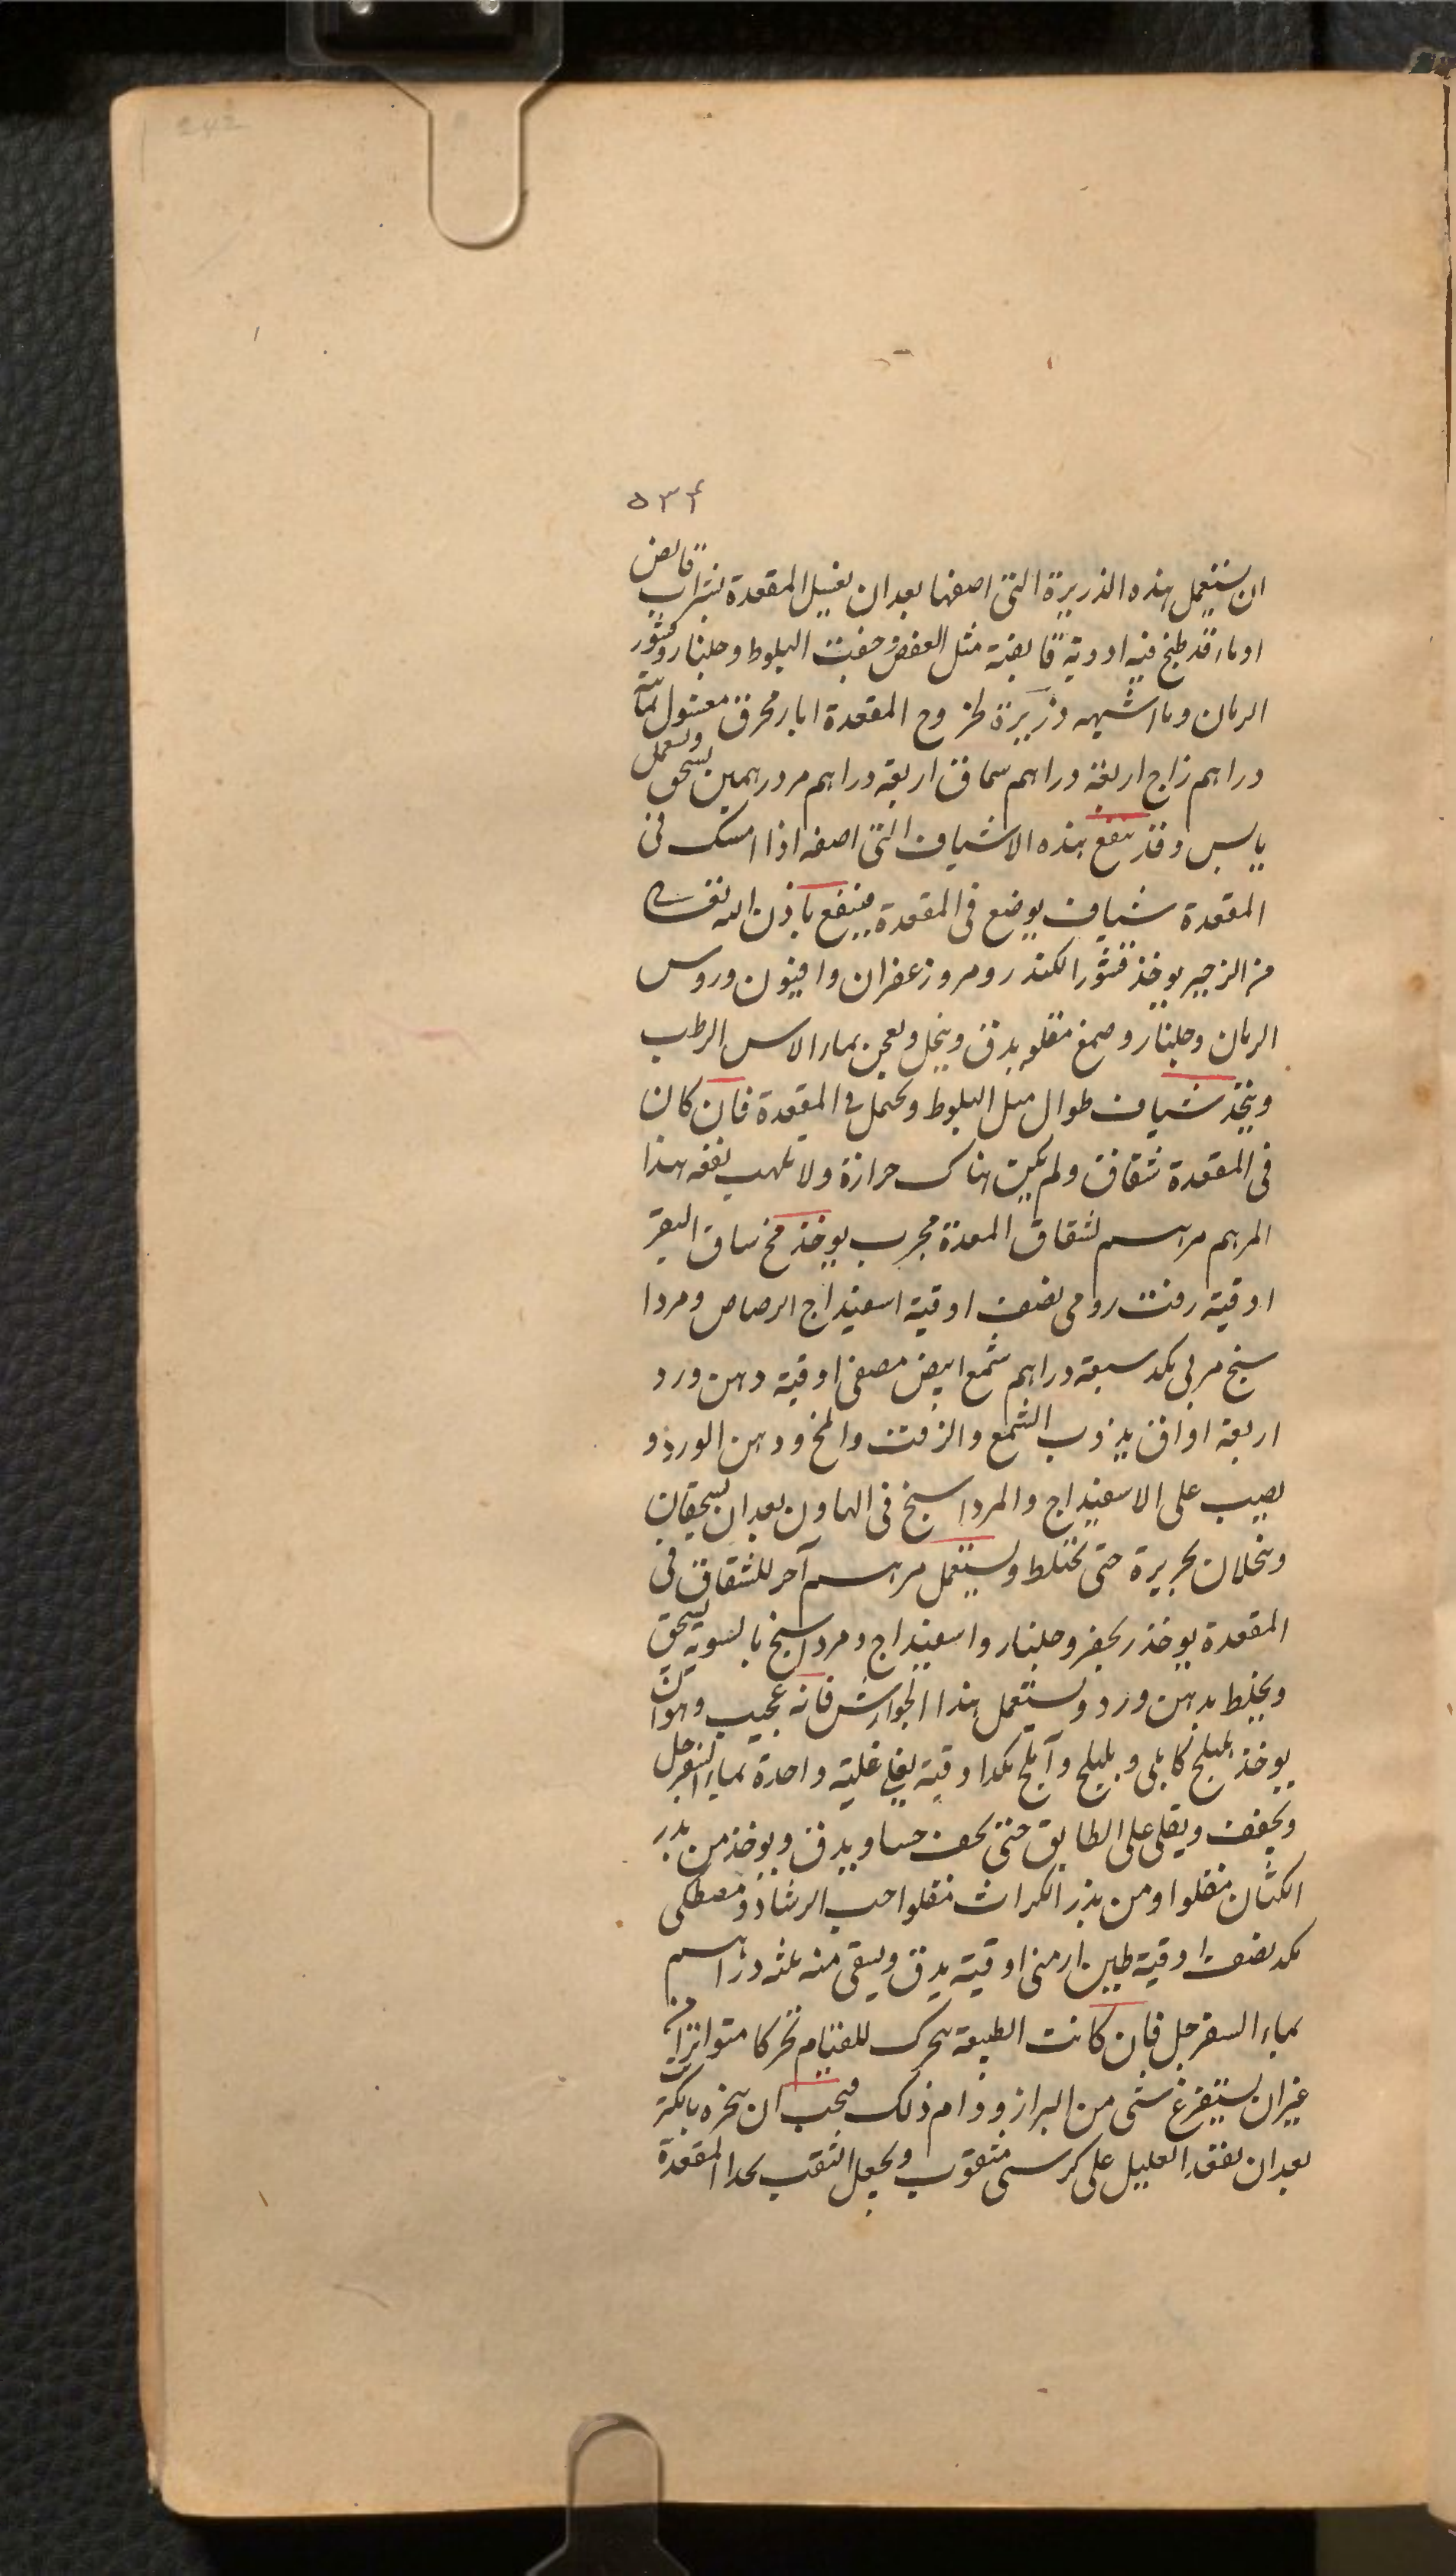 ۵۳۴
ان يستعمل هذه الذريرة التى اصفها بعد ان يغسل المقعدة بشراب قابض
او ماء قد طبخ فيه ادوية قابضة مثل العفص وجفت البلوط وجلنار وقشور
الرمان وما اشبهه ذريرة لخروج المقعدة ابار محرق مغسول ثمانية
دراهم زاج اربعة دراهم سماق اربعة دراهم مر درهمين يسحق ويستعمل
يابس وقد ينفع بهذه الاشياف التى اصفه اذا امسك فى
المقعدة شياف يوضع فى المقعدة فينفع باذن الله تعالى
من الزحير يوخذ قشور الكندر ومر وزعفران وافيون وروس
الرمان وجلنار وصمغ مقلو يدق وينخل ويعجن بماء الاس الرطب
ويتخذ شياف طوال مثل البلوط ويحتمل فى المقعدة فان كان
فى المقعدة شقاق ولم يكن هناك حرارة ولا تلهب نفعه هذا
المرهم مرهم لشقاق المعدة مجرب يوخذ مخ ساق البقر
اوقية زفت رومى نصف اوقية اسفيداج الرصاص ومردا
سنج مربى بكد سبعة دراهم شمع ابيض مصفى اوقية دهن ورد
اربعة اواق يذوب الشمع والزفت والمخ ودهن الورد و
يصب على الاسفيداج والمرداسنج فى الهاون بعد ان يسحقان
وينخلان بحريرة حتى يختلط ويستعمل مرهم آخر للشقاق فى
المقعدة يوخذ ريحفر وجلنار واسفيداج ومرداسنج بالسويه يسحق
ويخلط بدهن ورد ويستعمل هذا الجوارش فانه عجيب وهو ان
يوخذ هليلج كابلى وبليلج وآملج بكد اوقية يغلى غلية واحدة بماء السفرجل
ويجفف ويقلى على الطابق حتى يجف حسا ويدق ويوخذ من بذر
الكتان مقلوا ومن بذر الكراث مقلوا حب الرشاد ومصطكى
بكد نصف اوقية طين ارمنى اوقية يدق ويسقى منه ثلثه دراهم
بماء السفرجل فان كانت الطبيعة تتحرك للقيام تحركا متواترا من
غير ان يستفرغ شى من البراز ودام ذلك فيجب ان يبخره بالكبريت
بعد ان يقعد العليل على كرسى مثقوب ويجعل الثقب بحذا المقعدة